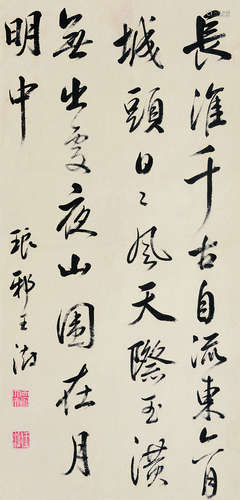 長淮千古自流東六月
城頭日日風天際玉潢
無出處夜山圍在月
明中
琅邪王澍